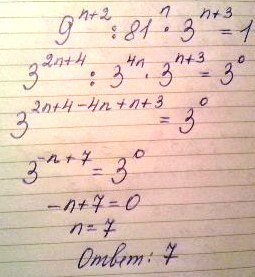 9^{n+2} : 81^n · 3^{n+3} = 1
3^{2n+4} : 3^{4n} · 3^{n+3} = 3^0
3^{2n+4-4n+n+3} = 3^0
3^{-n+7} = 3^0
-n+7=0
n=7
Ответ: 7